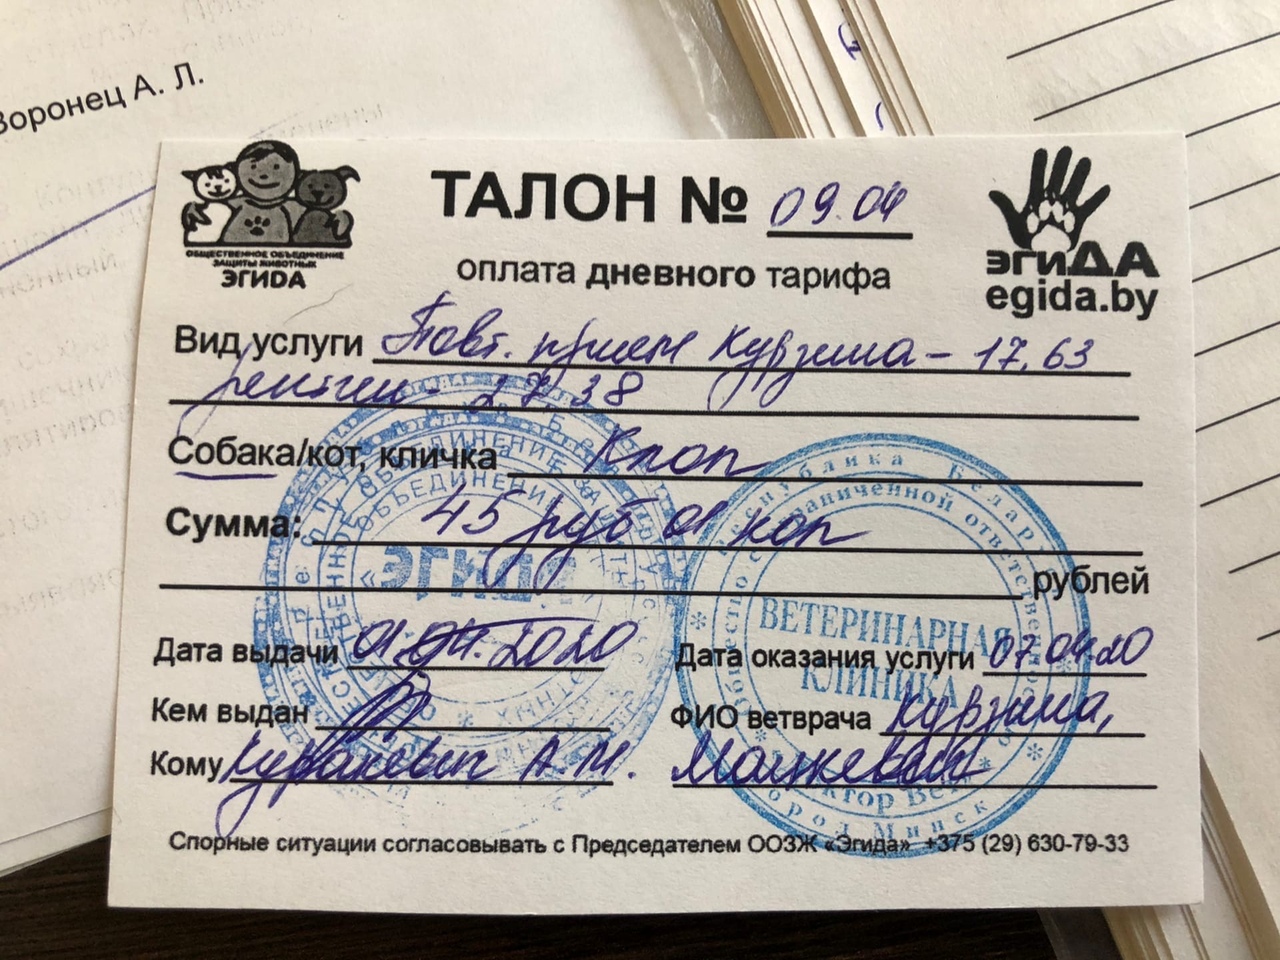 Воронец А. Л.
ОБЩЕСТВЕННОЕ ОБЪЕДИНЕНИЕ
ЗАЩИТЫ ЖИВОТНЫХ
ЭГИДА
ТАЛОН № 09.04
оплата дневного тарифа
эгиДА
egida.by
Вид услуги Повт. прием Курзина - 17,63
рентген - 27 38
Собака/кот, кличка Клоп
Сумма: 45 руб 01 коп
рублей
Дата выдачи 01.04.2020
Дата оказания услуги 07 04 20
Кем выдан
ФИО ветврача Курзина,
Кому А.М.
Спорные ситуации согласовывать с Председателем ООЗЖ «Эгида» +375 (29) 630-79-33
ЭГИДА
ВЕТЕРИНАРНАЯ
КЛИНИКА
Республика Беларусь
город Минск